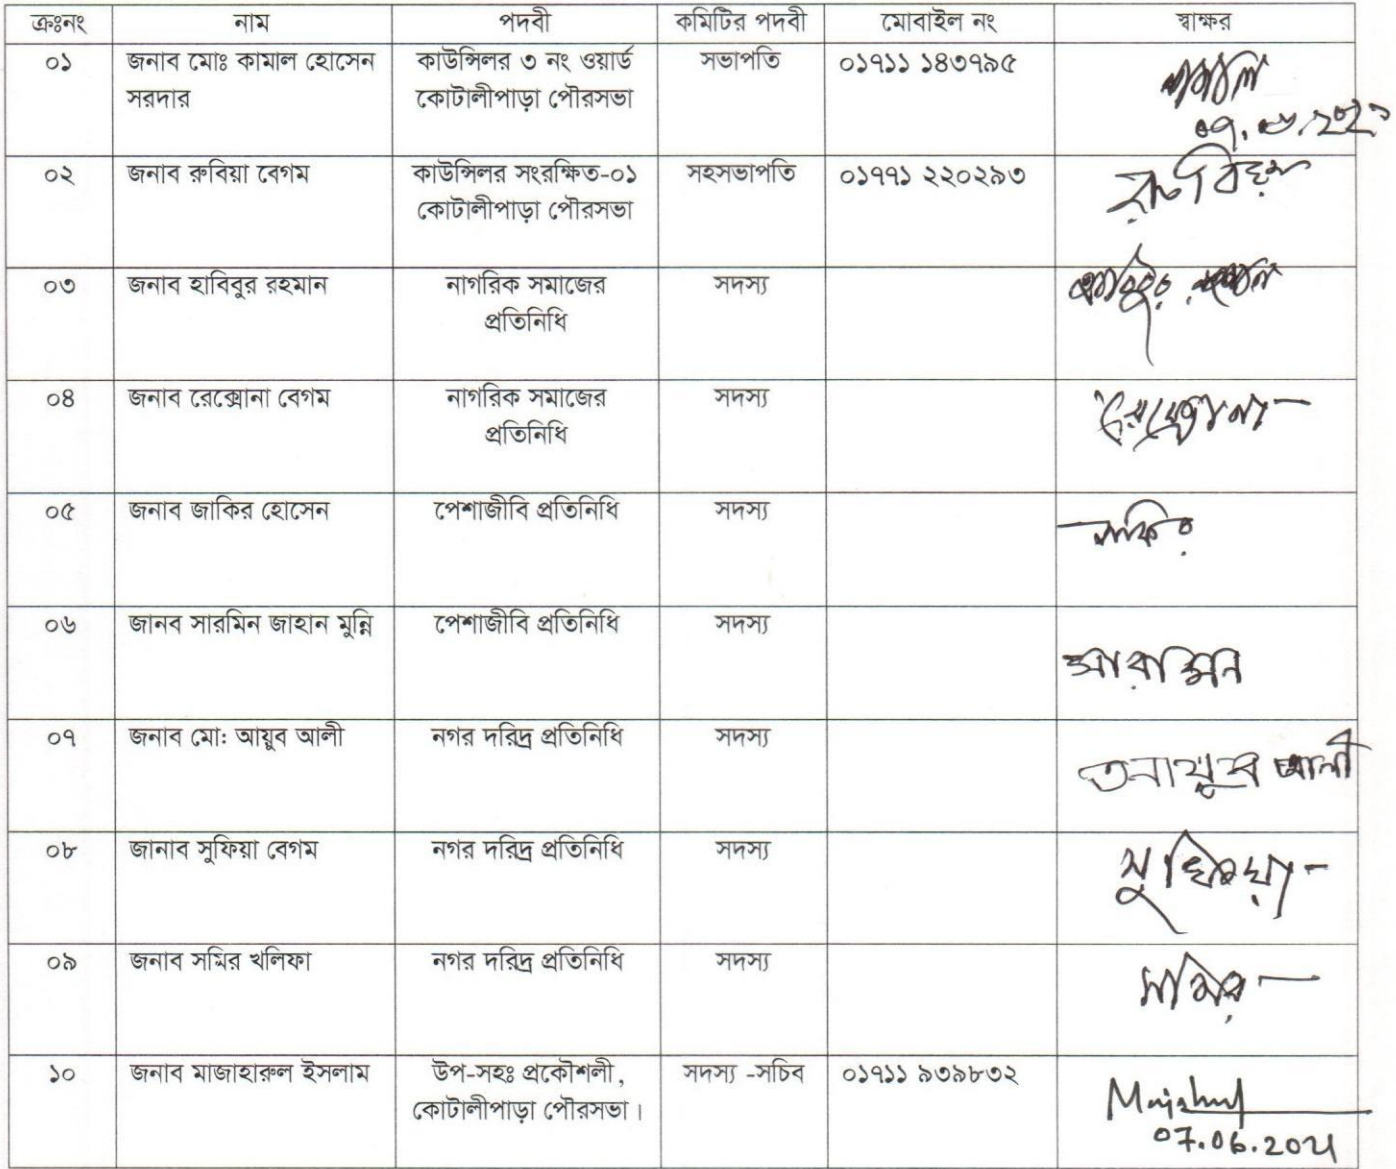 ক্রঃনং নাম পদবী কমিটির পদবী মোবাইল নং স্বাক্ষর
০১ জনাব মোঃ কামাল হোসেন কাউন্সিলর ৩ নং ওয়ার্ড সভাপতি ০১৭১১ ১৪৩৭৯৫
সরদার কোটালীপাড়া পৌরসভা
০২ জনাব রুবিয়া বেগম কাউন্সিলর সংরক্ষিত-০১ সহসভাপতি ০১৭৭১ ২২০২৯৩
কোটালীপাড়া পৌরসভা
০৩ জনাব হাবিবুর রহমান নাগরিক সমাজের সদস্য
প্রতিনিধি
০৪ জনাব রেক্সোনা বেগম নাগরিক সমাজের সদস্য
প্রতিনিধি
০৫ জনাব জাকির হোসেন পেশাজীবি প্রতিনিধি সদস্য
জাকির
০৬ জানব সারমিন জাহান মুন্নি পেশাজীবি প্রতিনিধি সদস্য
সারমিন
০৭ জনাব মো: আয়ুব আলী নগর দরিদ্র প্রতিনিধি সদস্য
আয়ুব আলী
০৮ জানাব সুফিয়া বেগম নগর দরিদ্র প্রতিনিধি সদস্য
সুফিয়া
০৯ জনাব সমির খলিফা নগর দরিদ্র প্রতিনিধি সদস্য
সমির
১০ জনাব মাজাহারুল ইসলাম উপ-সহঃ প্রকৌশলী, সদস্য -সচিব ০১৭১১ ৯৩৯৮৩২
কোটালীপাড়া পৌরসভা।
07.06.2021